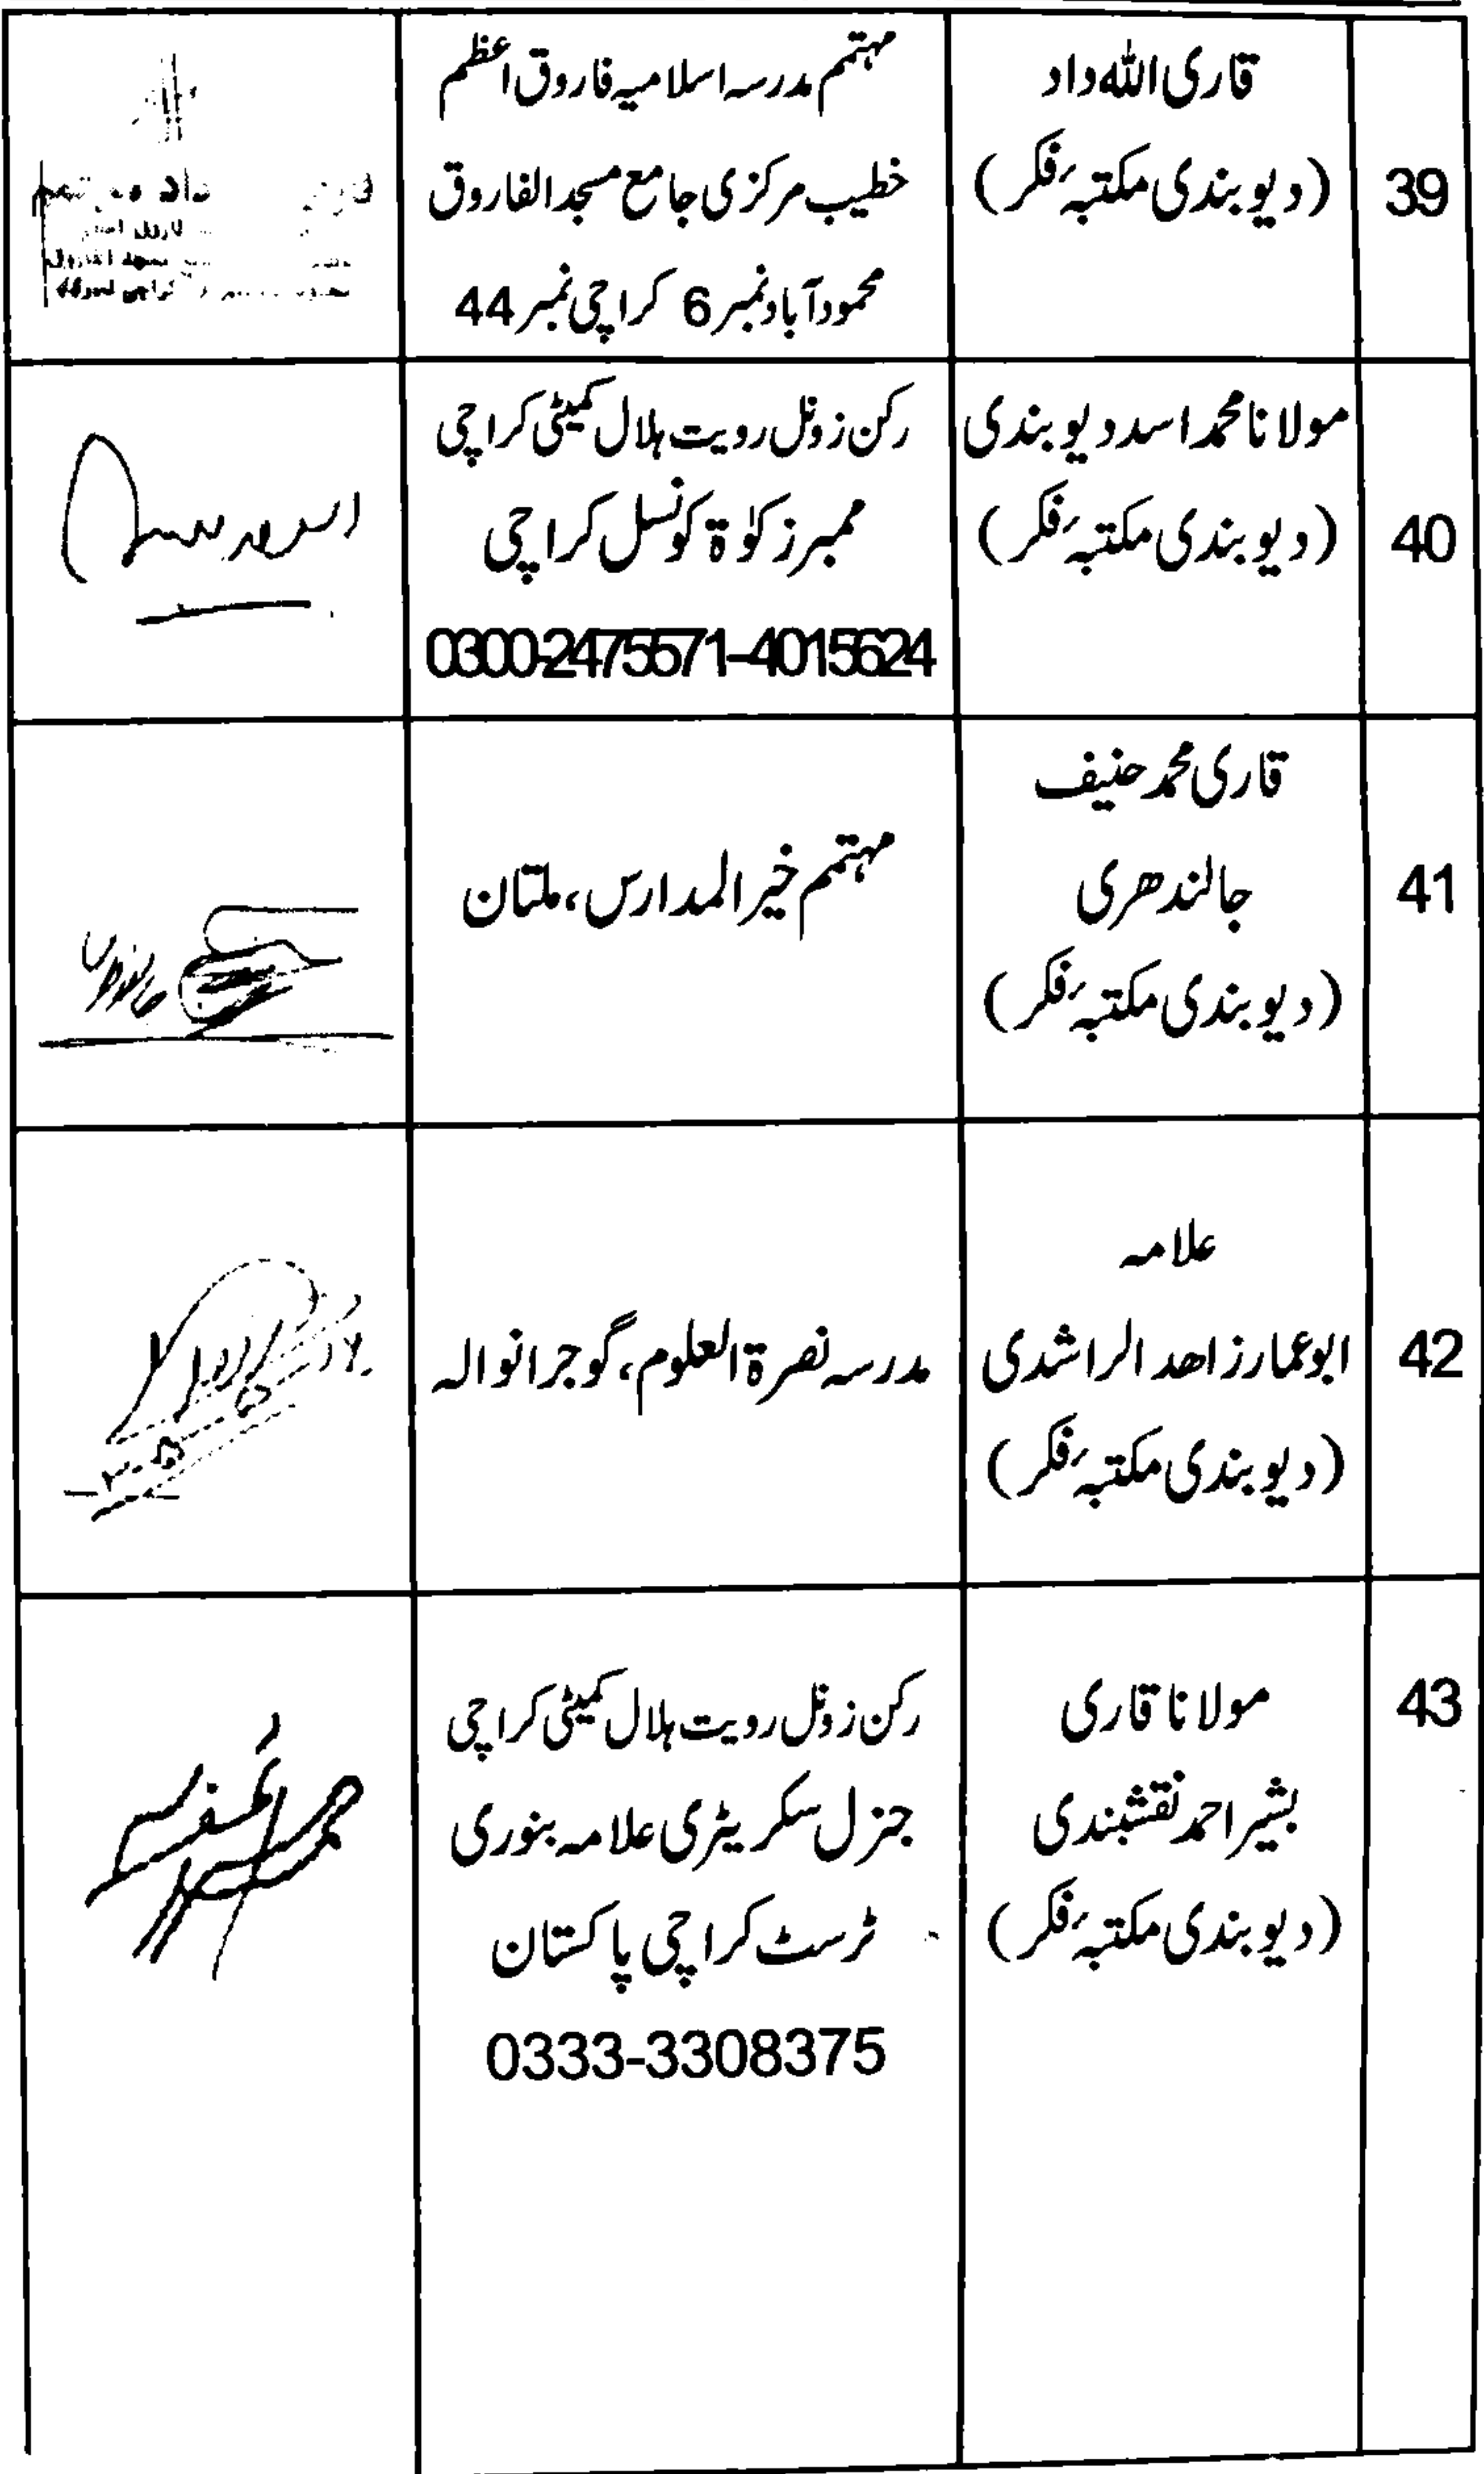 39
قاری اللہ داد
(دیوبندی مکتبہ ٔ فکر)
مہتمم مدرسہ اسلامیہ فاروق اعظم
خطیب مرکزی جامع مسجد الفاروق
محمود آباد نمبر 6 کراچی نمبر 44
40
مولانا محمد اسد دیوبندی
(دیوبندی مکتبہ ٔ فکر)
رکن زونل رویت ہلال کمیٹی کراچی
ممبر زکوٰۃ کونسل کراچی
0300-2475571-4015624
41
قاری محمد حنیف
جالندھری
(دیوبندی مکتبہ ٔ فکر)
مہتمم خیر المدارس، ملتان
42
علامہ
ابوعمار زاھد الراشدی
(دیوبندی مکتبہ ٔ فکر)
مدرسہ نصرۃ العلوم، گوجرانوالہ
43
مولانا قاری
بشیر احمد نقشبندی
(دیوبندی مکتبہ ٔ فکر)
رکن زونل رویت ہلال کمیٹی کراچی
جنرل سکریٹری علامہ بنوری
ٹرسٹ کراچی پاکستان
0333-3308375